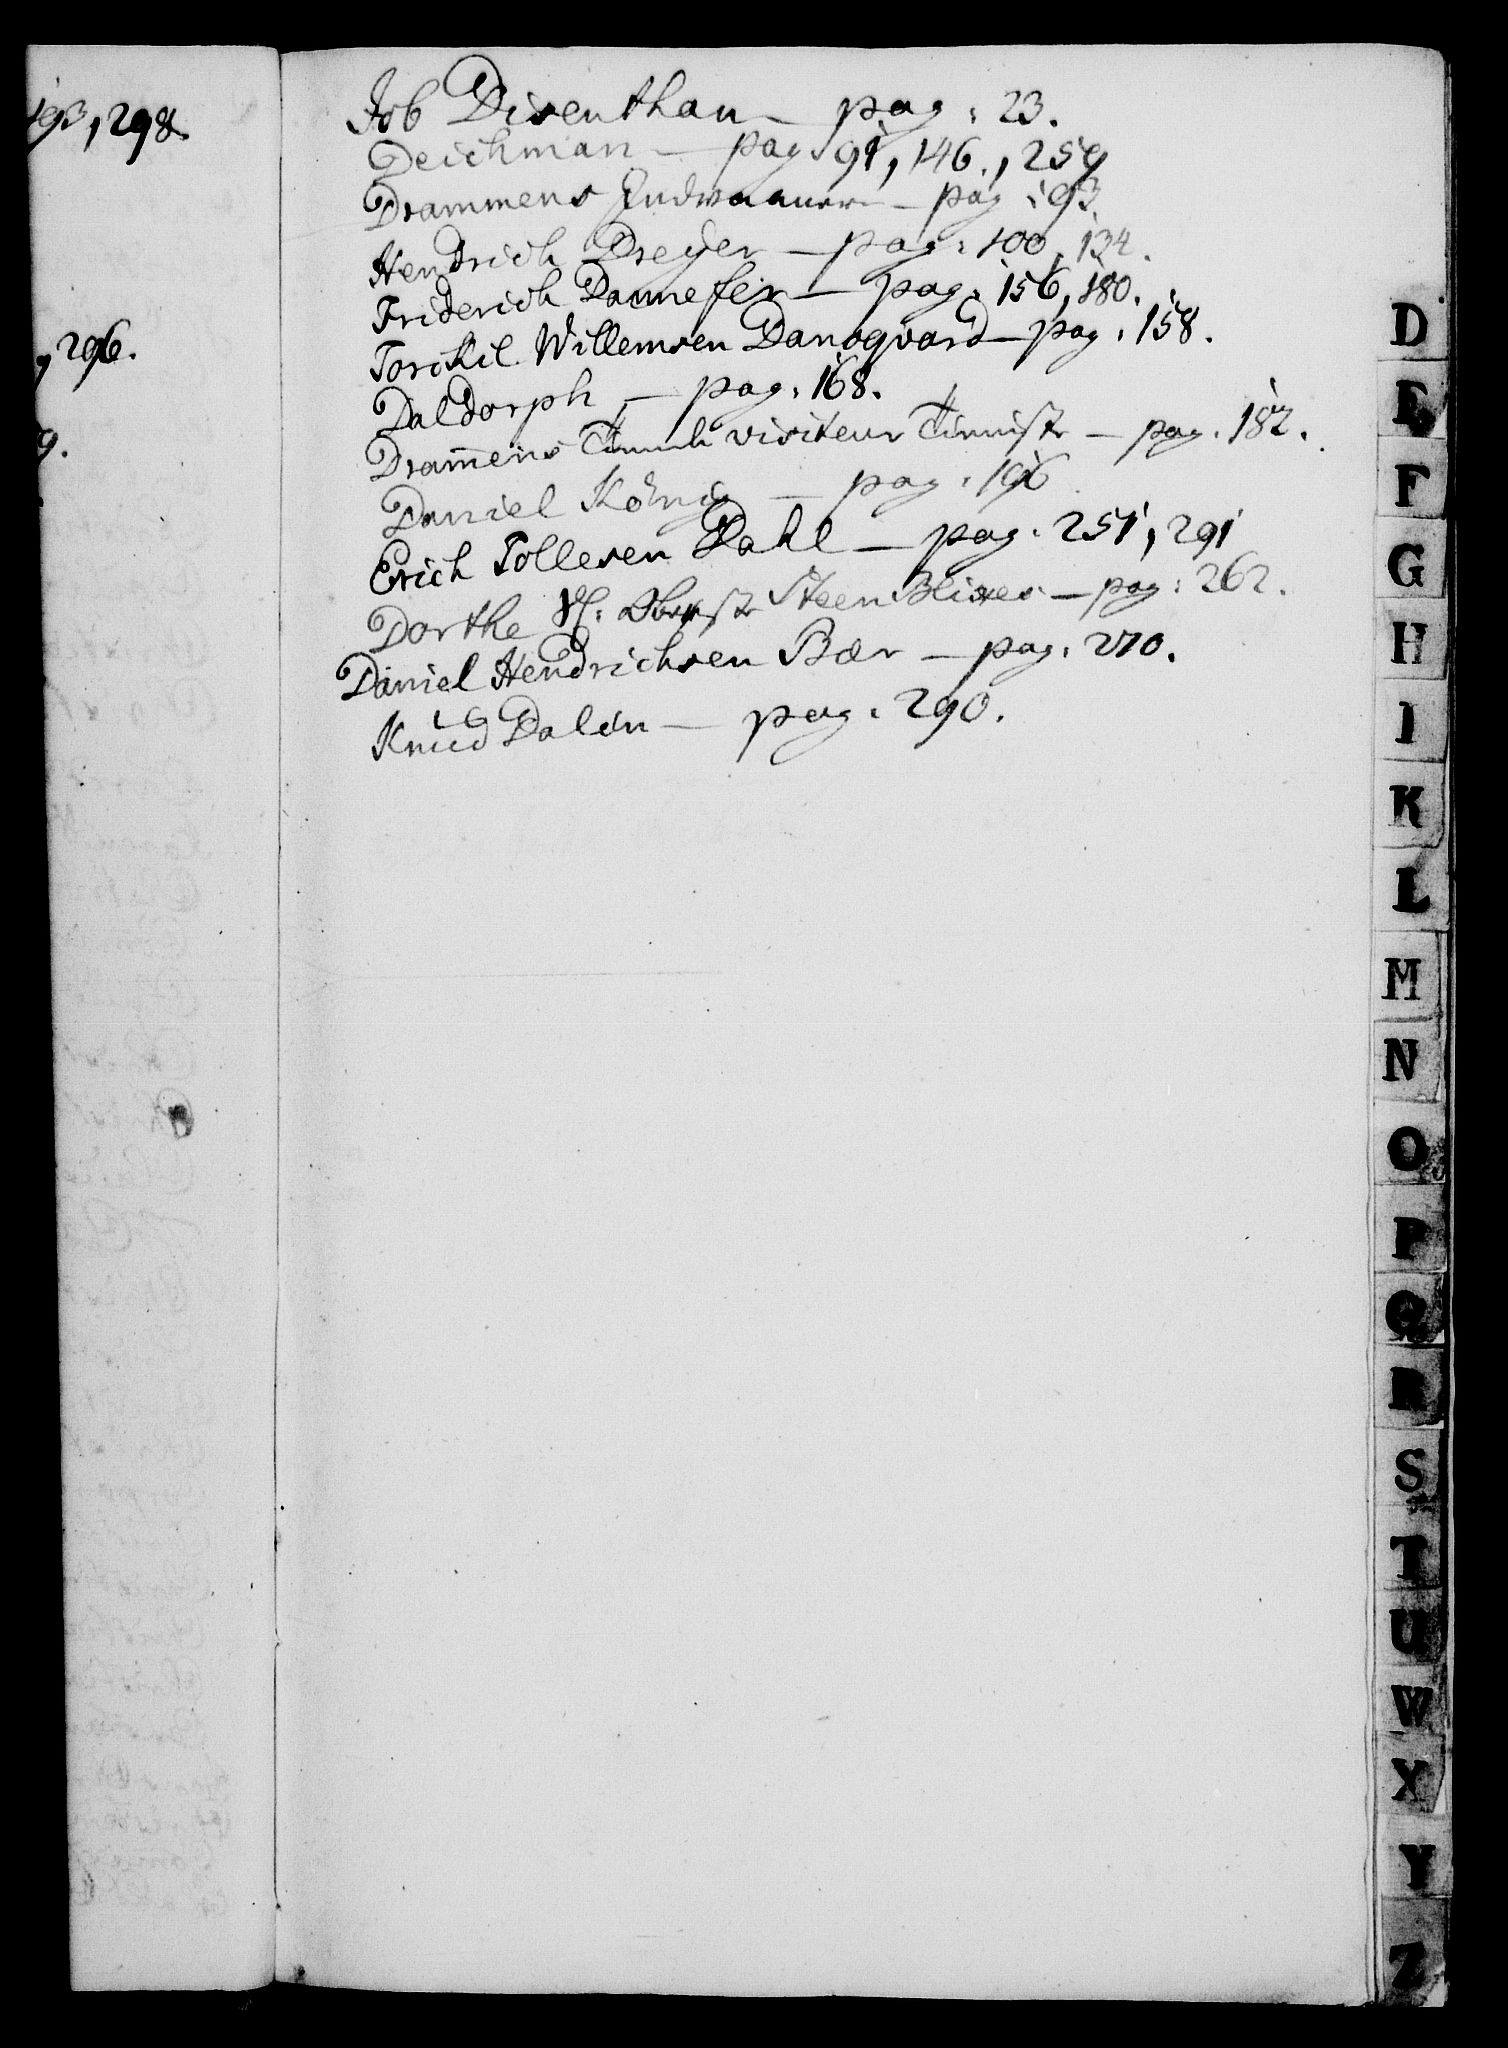 193, 298.
, 296.
9.
Job Disenthan – pag: 23.
Deichman – pag: 91, 146., 259
Drammens Indvaanere – pag: 93.
Hendrich Dreyer – pag: 100, 134.
Friderich Dannefer – pag: 156, 180.
Torckil Willemsen Danoqvard – pag: 158.
Daldorph – pag: 168.
Dram̄ens visiteur – pag: 182.
Daniel König – pag: 196
Erich Tollesen Dahl – pag: 251, 291
Dorthe Sl. Oberste Steen Blixes – pag: 262.
Daniel Hendrichsen Bær – pag: 270.
Knud Dalen – pag: 290.
D
E
F
G
H
I
K
L
M
N
O
P
Q
R
S
T
U
W
X
Y
Z